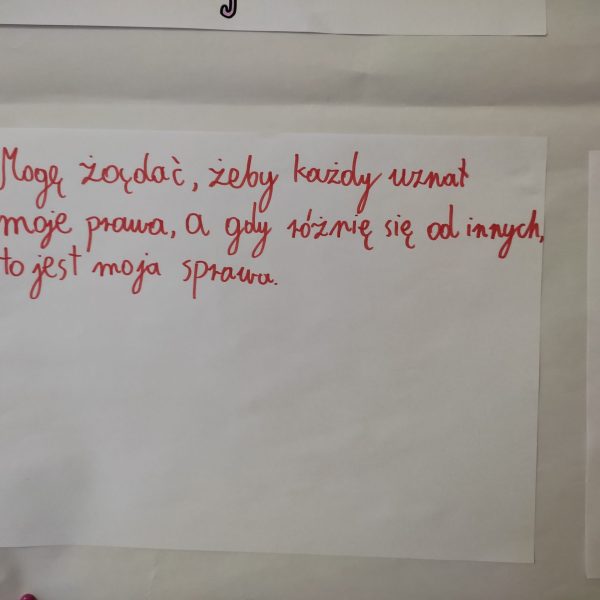 Mogę żądać, żeby każdy uznał
moje prawa, a gdy różnię się od innych,
to jest moja sprawa.